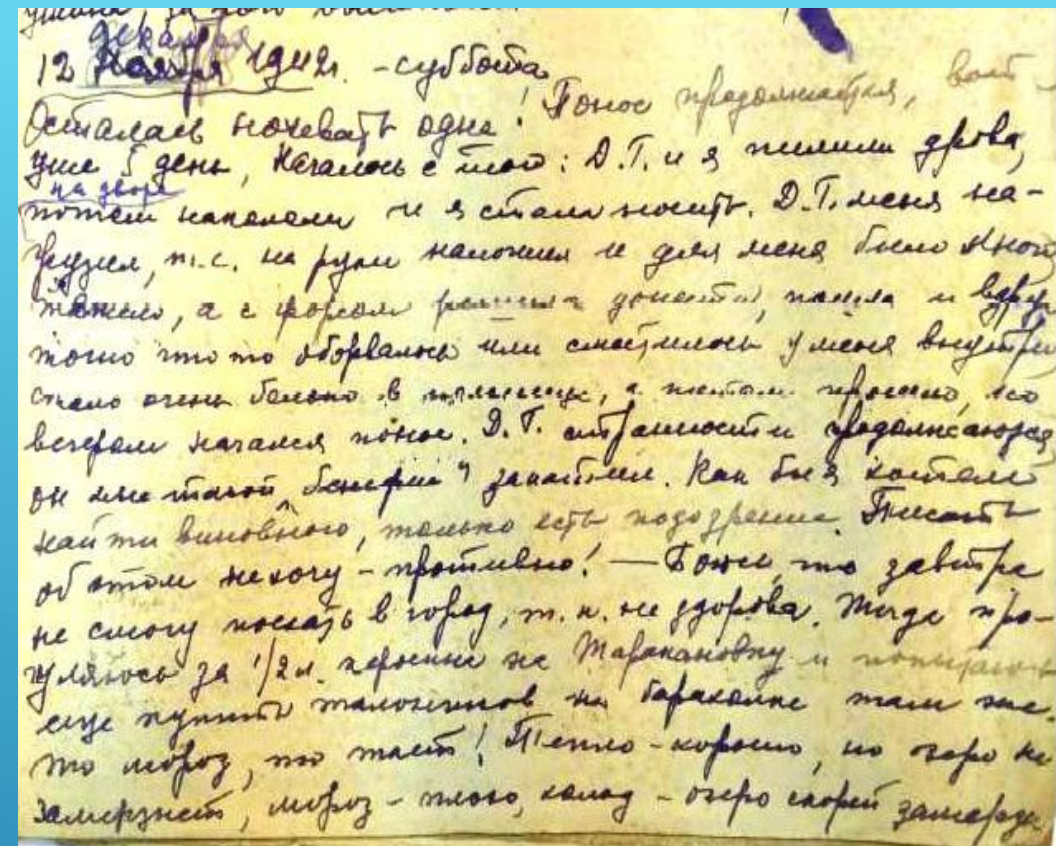 декабря
12 Ноября 1942г. - суббота.
Осталась ночевать одна! Понос продолжается, вот
уже 5 день, Началось с того: Д.Т. и я пилили дрова,
на дворе
потом накололи и я стала носить. Д.Т. меня на-
грузил, т.е. на руки наложил и для меня было
тяжело, а с форсом решила донести, пошла и вдруг
точно что то оборвалось или сместилось у меня внутри
стало очень больно в, а потом прошло, но
вечером начался понос. Д.Т. странности продолжаются
он мне такой "бенефис" закатил. Как бы я хотела
найти виновного, только есть подозрение. Писать
об этом не хочу - противно! — Боюсь, что завтра
не смогу поехать в город, т.к. не здорова. Тогда про-
гуляюсь за 1/2 л. керосина на Таракановку и попытаюсь
еще купить талончиков на барахолке там же.
То мороз, то тает! Тепло - хорошо, но озеро не
замерзнет, мороз - плохо, холод - озеро скорей замерзнет